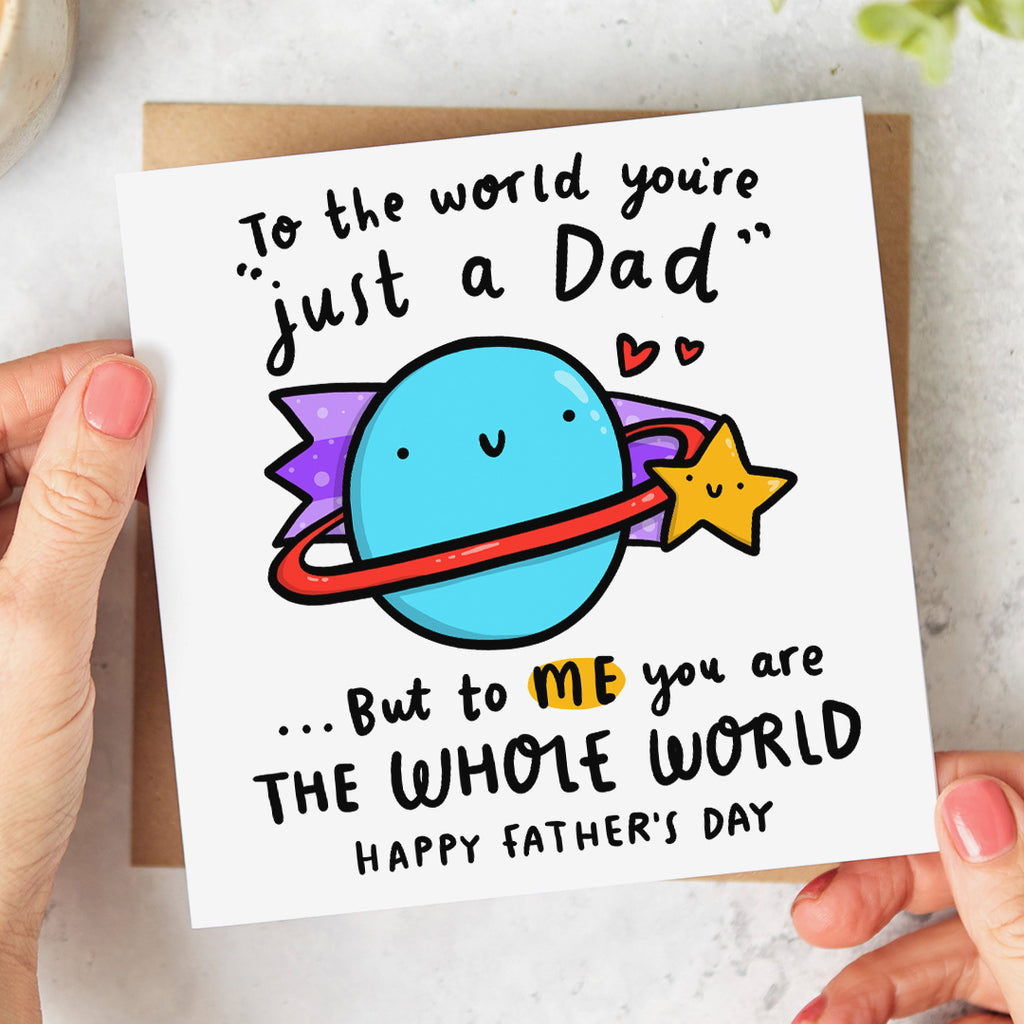 To the world you're
"just a Dad"
...But to ME you are
THE WHOLE WORLD
HAPPY FATHER'S DAY